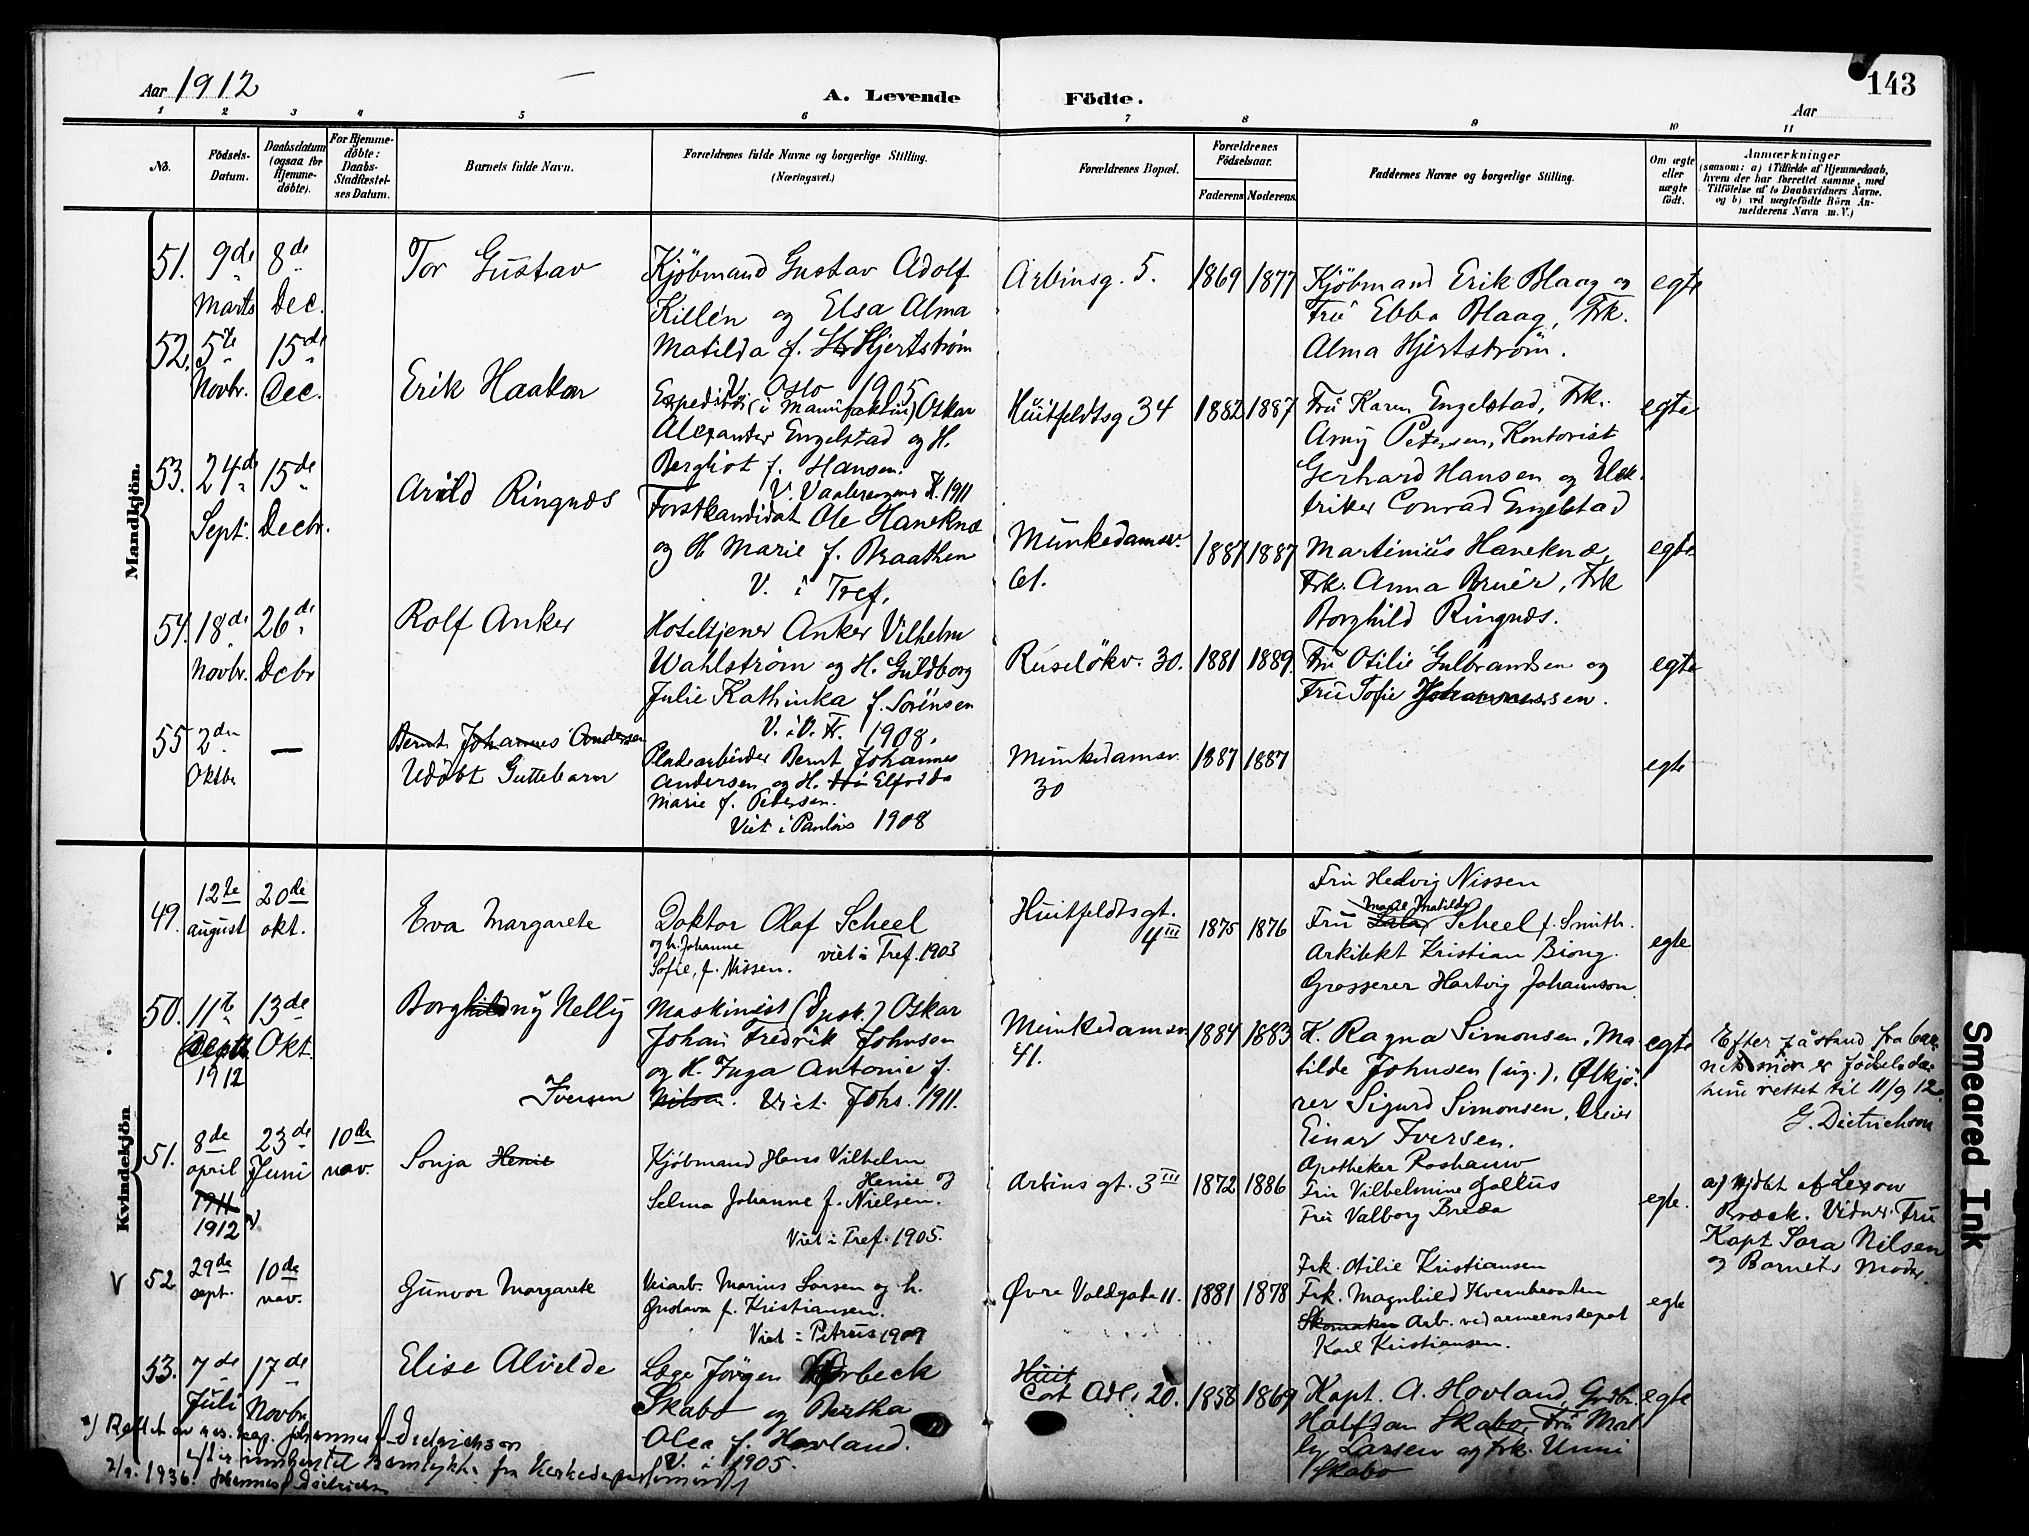 Aar 1912
A. Levende Födte.
143
Aar
1 2 3 4 5 6 7 8 9 10 11
No.
Födsels-Datum.
Daabsdatum (ogsaa for Hjemme-döbte).
For Hjemme-döbte: Daabs-Stadfæstel-ses Datum.
Barnets fulde Navn.
Forældrenes fulde Navne og borgerlige Stilling.
(Næringsvei.)
Forældrenes Bopæl.
Forældrenes Födselsaar.
Faderens Moderens.
Faddernes Navne og borgerlige Stilling.
Om ægte eller uægte födt.
Anmærkninger
(saasom: a) i Tilfælde af Hjemmedaab,
hvem der har forrettet samme, med
Tilföielse af to Daabsvidners Navne.
og b) ved uægtefödte Börn An-
melderens Navn m. V.)
Mandkjön.
51. 9de Marts 8de Dec.
Tor Gustav
Kjöbmand Gustav Adolf
Killén og Elsa Alma
Matilda f. Hjertström
V. Oslo 1905
Arbinsg. 5.
1869 1877
Kjöbmand Erik Blaag og
Fru Ebba Blaag, Frk.
Alma Hjertström.
egte
52. 5te Novbr. 15de Dec.
Erik Haakon
Expeditör (i Manufaktur) Oskar
Alexander Engelstad og H.
Bergliot f. Hansen.
V. Vaalerengens K. 1911
Huitfeldtsg 34
1882 1887
Fru Karen Engelstad, Frk.
Arny Petersen, Kontorist
Gerhard Hansen og Elek-
triker Conrad Engelstad
egte
53. 24de Sept. 15de Decbr.
Arvild Ringnæs
Forstkandidat Ole Haneknæ
og H. Marie f. Braathen
V. i Tref.
Munkedamsv. 61.
1887 1887
Martinius Haneknæ,
Frk. Anna Bruer, Frk
Borghild Ringnæs.
egte
54. 18de Novbr. 26de Dcbr
Rolf Anker
Hoteltjener Anker Vilhelm
Wahlström og H. Guldborg
Julie Kathinka f. Sörensen
V. i V. Fr. 1908.
Ruselökv. 30.
1881 1889.
Fru Otilie Gulbrandsen og
Fru Sofie Johannessen.
egte
55 2den Oktbr —
Bernt Johannes Andersen
Udöbt Guttebarn
Pladearbeider Bernt Johannes
Andersen og H. Elfrida
Marie f. Petersen.
Viet i Paulus 1908
Munkedamsv. 30
1887 1887
egte
Kvindekjön
49. 12te august 20de okt.
Eva Margarete
Doktor Olaf Scheel
og h. Johanne
Sofie, f. Nissen. viet i Tref. 1903
Huitfeldtsgt. 4 III
1875 1876
Fru Hedvig Nissen
Marie Matilde
Fru Scheel f. Smith.
Arkitekt Kristian Biong.
Grosserer Hartvig Johannson
egte
50. 11te Septb. 1912 13de Okt.
Borghildny Nelly
Iversen
Maskinist (Dpsk.) Oskar
Johan Fredrik Johnsen
og H. Inga Antonie f.
Nilsen. Viet. Johs. 1911.
Munkedamsv. 41.
1884 1883
H. Ragna Simonsen, Ma-
tilde Johnsen (ug.), Ölkjö-
rer Sigurd Simonsen,
Einar Iversen.
egte
Efter paastand fra bar-
nets mor er födselsda-
tum rettet til 11/9 12.
G. Dietrichson
51. 8de april 1911 1912 23de Juni 10de nov.
Sonja Henie
Kjöbmand Hans Vilhelm
Henie og
Selma Johanne f. Nielsen.
Viet i Tref. 1905.
Arbins gt. 3 III
1872 1886
Apotheker Roshauw
Fru Vilhelmine Gallus
Fru Valborg Breda
egte.
a) Hjdbt af Lexow
Bræck. Vidner Fru
Kapt Sara Nilsen
og Barnets Moder.
V 52 29de sept. 10de nov.
Gunvor Margarete
Veiarb. Marius Larsen og h.
Gustava f. Kristiansen.
Viet i Petrus 1909
Övre Voldgate 11.
1881 1878
Frk. Otilie Kristiansen
Frk. Magnhild Kvernbraaten
Skomaker Arb. ved armeensdepot
Karl Kristiansen.
egte
53. 7de Juli 17de Novbr.
Elise Alvilde
Læge Jörgen Norbeck
Skabo og Bertha
Olea f. Hovland.
V. i 1905.
Huit
Cort Adl. 20.
1858 1869
Kapt. A. Hovland, Grdbr.
Halfdan Skabo, Fru Mal-
ly Larsen og Frk. Unni
Skabo
egte
Rettet av res. kap. Johannes Dietrichson
efter innhentet Samtykke fra Kirkedepartementet
2/9. 1936. Johannes Dietrichson
Smeared Ink